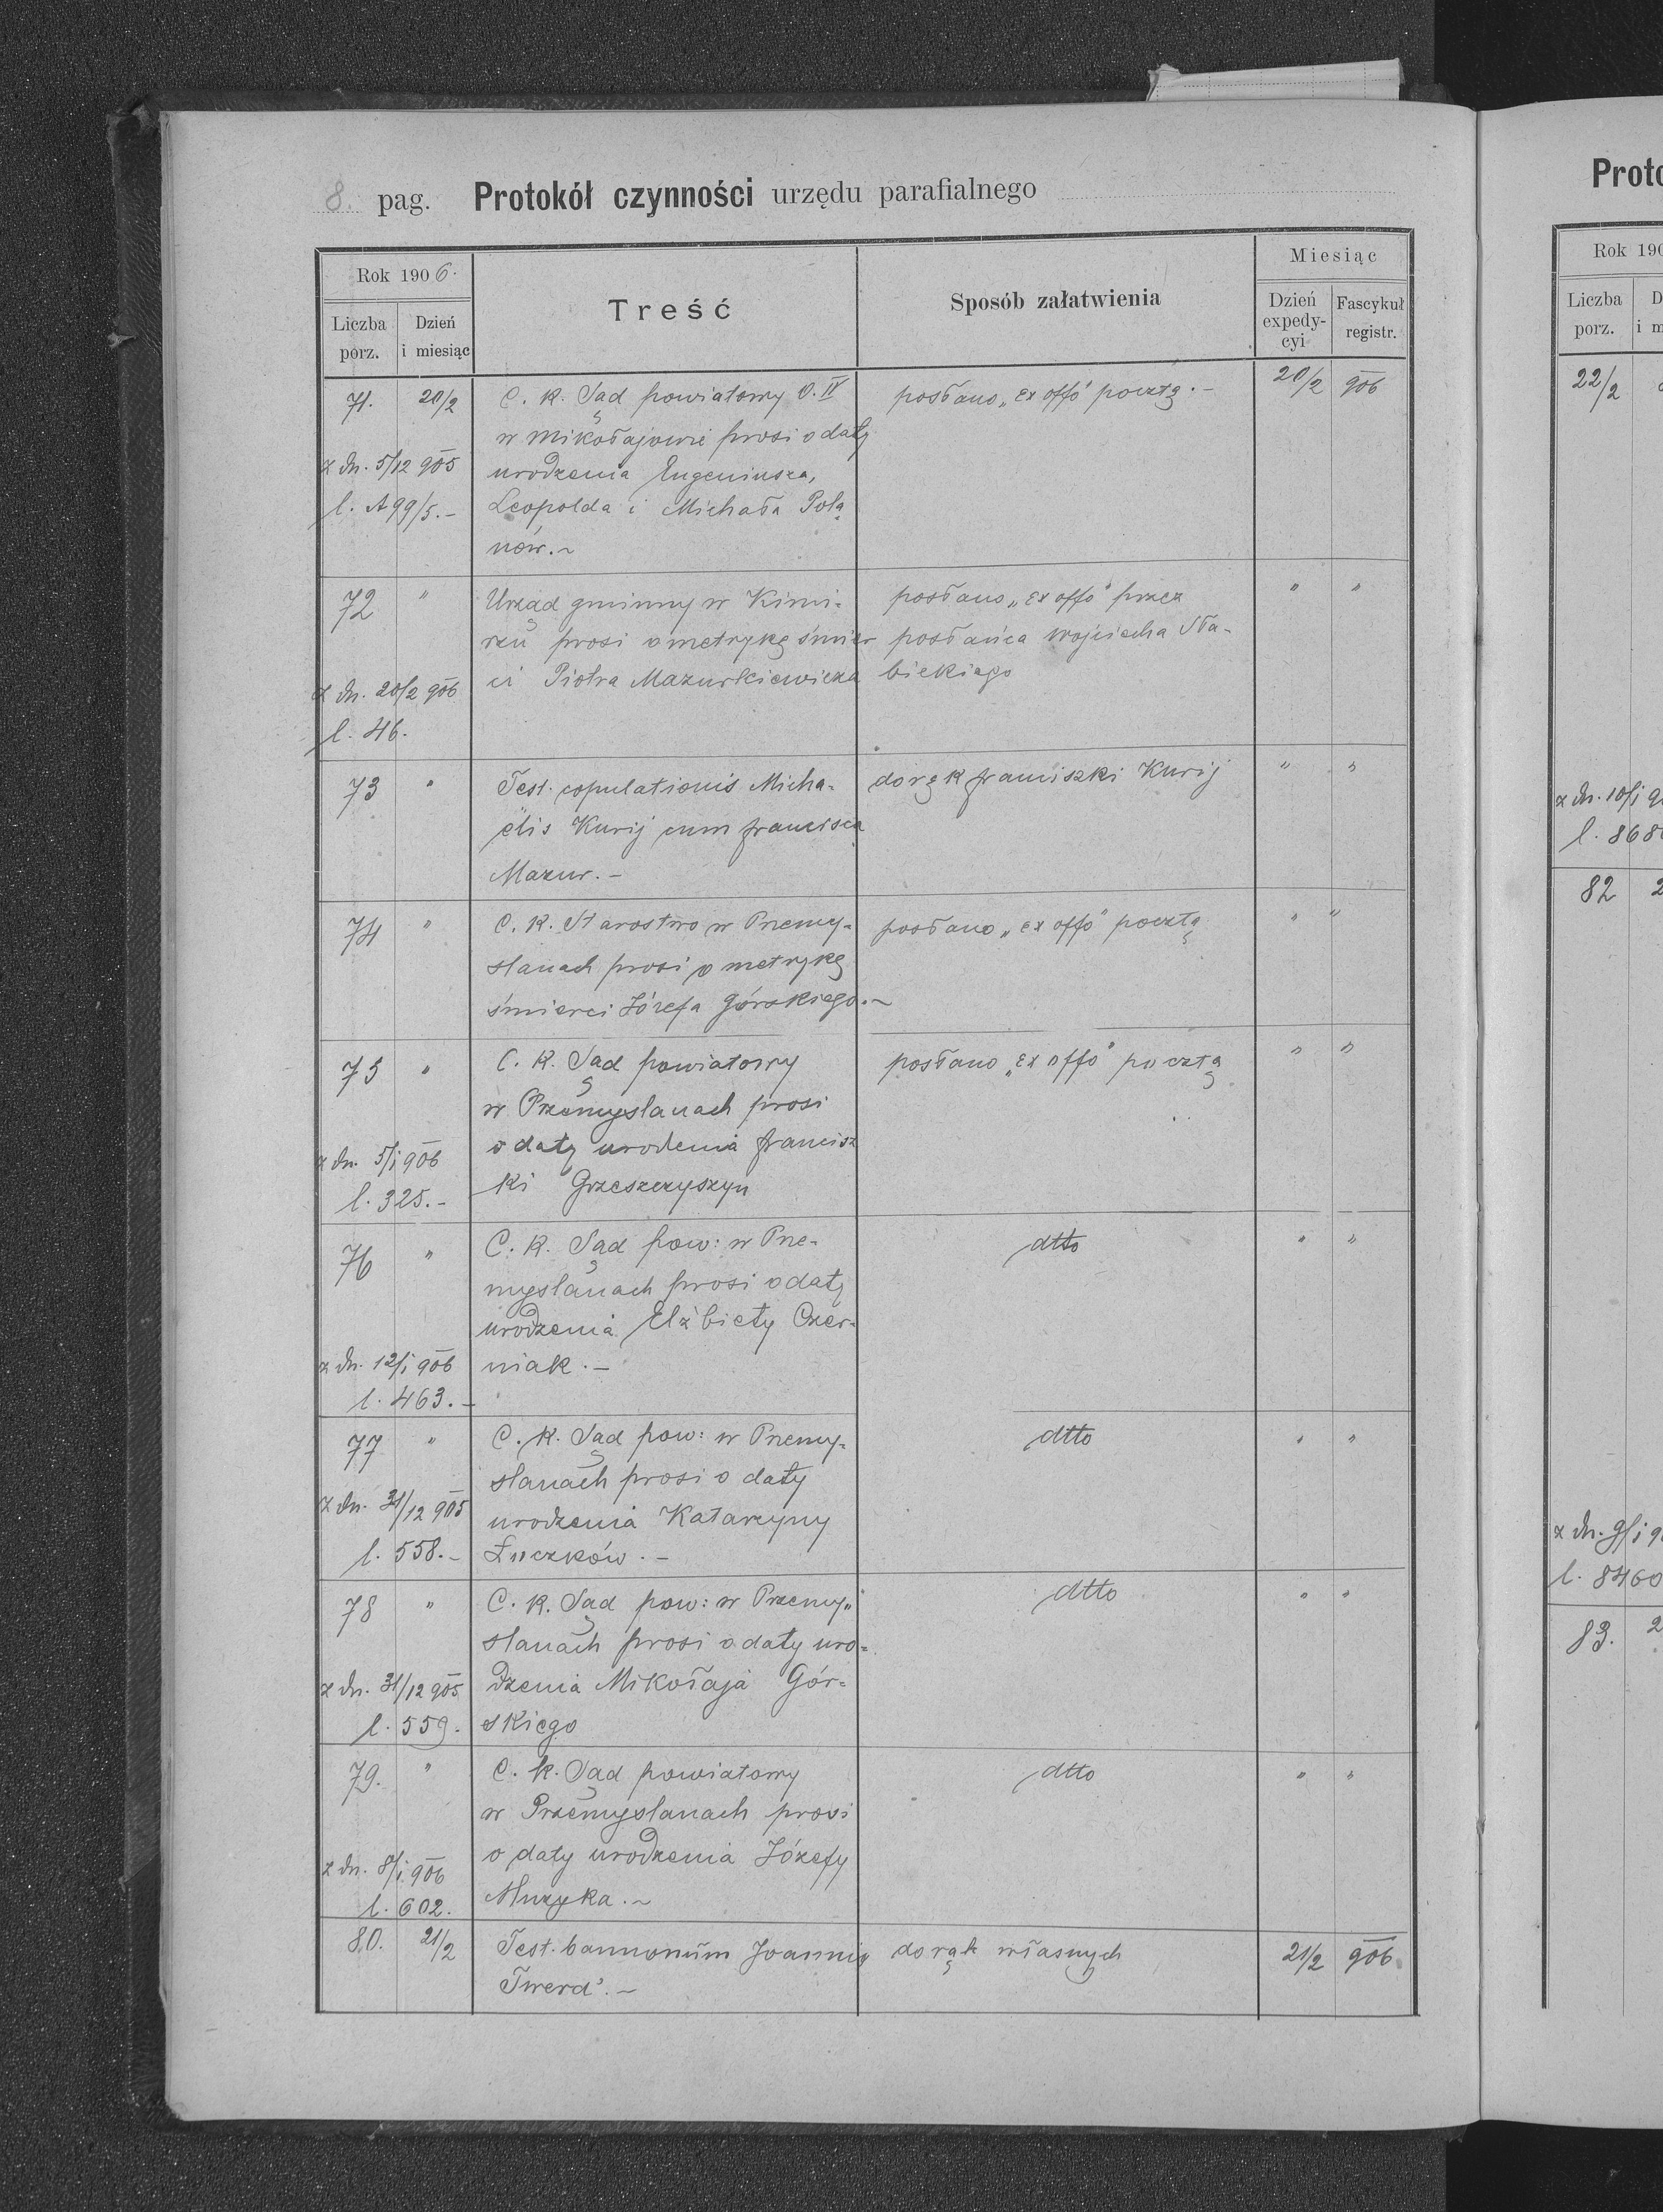 8. pag. Protokół czynności urzędu parafialnego
Rok 1906.
Liczba porz.
Dzień i miesiąc
Treść
Sposób załatwienia
Miesiąc
Dzień expedy-cyi
Fascykuł registr.
71. 20/2 C. K. Sąd powiatowy O. IV posłano „ex offo" pocztą.- 20/2 906
w Mikołajowie prosi o daty
z dn. 5/12 905 urodzenia Eugeniusza,
l. A 99/5.- Leopolda i Michała Polą
nów.~
72 " Urząd gminny w Kimi= posłano „ex offo" przez " "
rzu prosi o metrykę śmier posłańca Wojciecha Sła-
z dn. 20/2 906 ci Piotra Mazurkiewicza bickiego
l. 46.
73 " Test. copulationis Micha= do rąk Franciszki Kurij " "
elis Kurij cum Francisca
Mazur.-
74 " C. K. Starostwo w Przemy= posłano „ex offo" pocztą " "
slanach prosi o metrykę
śmierci Józefa Górskiego.~
75 " C. K. Sąd powiatowy posłano „ex offo" pocztą " "
w Przemyslanach prosi
z dn. 5/i 906 o daty urodenia Francisz
l. 325.- ki Grzeszczyszyn
76 " C. K. Sąd pow: w Prze= dtto " "
myslanach prosi o daty
urodzenia Elżbiety Czer=
z dn. 12/i 906 niak.-
l. 463.-
77 " C. K. Sąd pow: w Przemy= dtto " "
slanach prosi o daty
z dn. 31/12 905 urodzenia Katarzyny
l. 558.- Łuczków.-
78 " C. K. Sąd pow: w Przemy„ dtto " "
slanach prosi o daty uro=
z dn. 31/12 905 dzenia Mikołaja Gór=
l. 559. skiego
79. " C. K. Sąd powiatowy dtto " "
w Przemyslanach prosi
z dn. 8/i 906 o daty urodzenia Józefy
l. 602. Muzyka.~
80. 21/2 Test. bannonum Joannis do rąk własnych 21/2 906
Twerd'.~
Proto
Rok 190
Liczba porz.
22/2
z dn. 10/i 9
l. 868
82 2
z dn. 9/i 9
l. 8460
83. 2